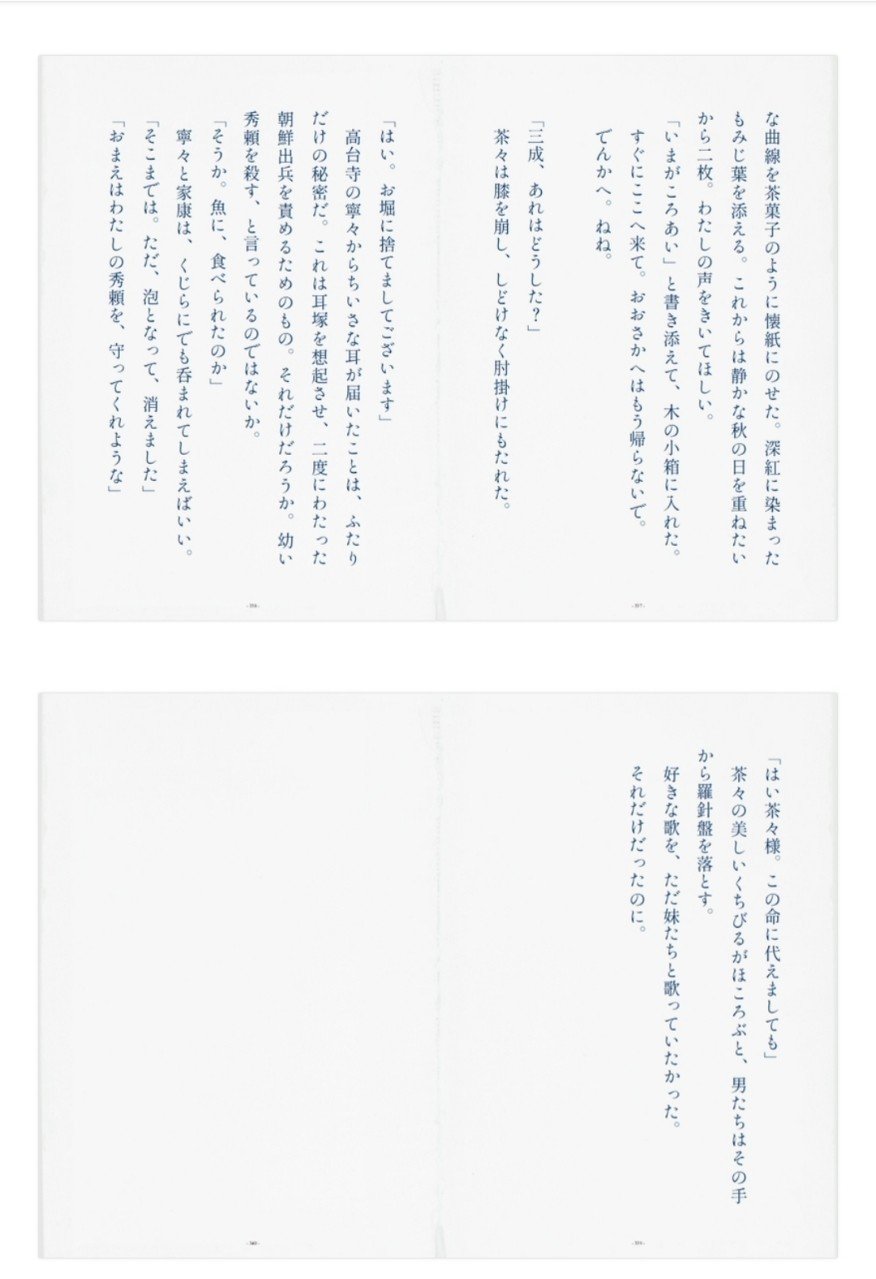 な曲線を茶菓子のように懐紙にのせた。深紅に染まった
もみじ葉を添える。これからは静かな秋の日を重ねたい
から二枚。わたしの声をきいてほしい。
「いまがころあい」と書き添えて、木の小箱に入れた。
すぐにここへ来て。おおさかへはもう帰らないで。
でんかへ。ねね。
「三成、あれはどうした?」
茶々は膝を崩し、しどけなく肘掛けにもたれた。
- 357 -
「はい。お堀に捨てましてございます」
高台寺の寧々からちいさな耳が届いたことは、ふたり
だけの秘密だ。これは耳塚を想起させ、二度にわたった
朝鮮出兵を責めるためのもの。それだけだろうか。幼い
秀頼を殺す、と言っているのではないか。
「そうか。魚に、食べられたのか」
寧々と家康は、くじらにでも呑まれてしまえばいい。
「そこまでは。ただ、泡となって、消えました」
「おまえはわたしの秀頼を、守ってくれような」
- 358 -
「はい茶々様。この命に代えましても」
茶々の美しいくちびるがほころぶと、男たちはその手
から羅針盤を落とす。
好きな歌を、ただ妹たちと歌っていたかった。
それだけだったのに。
- 359 -
- 360 -